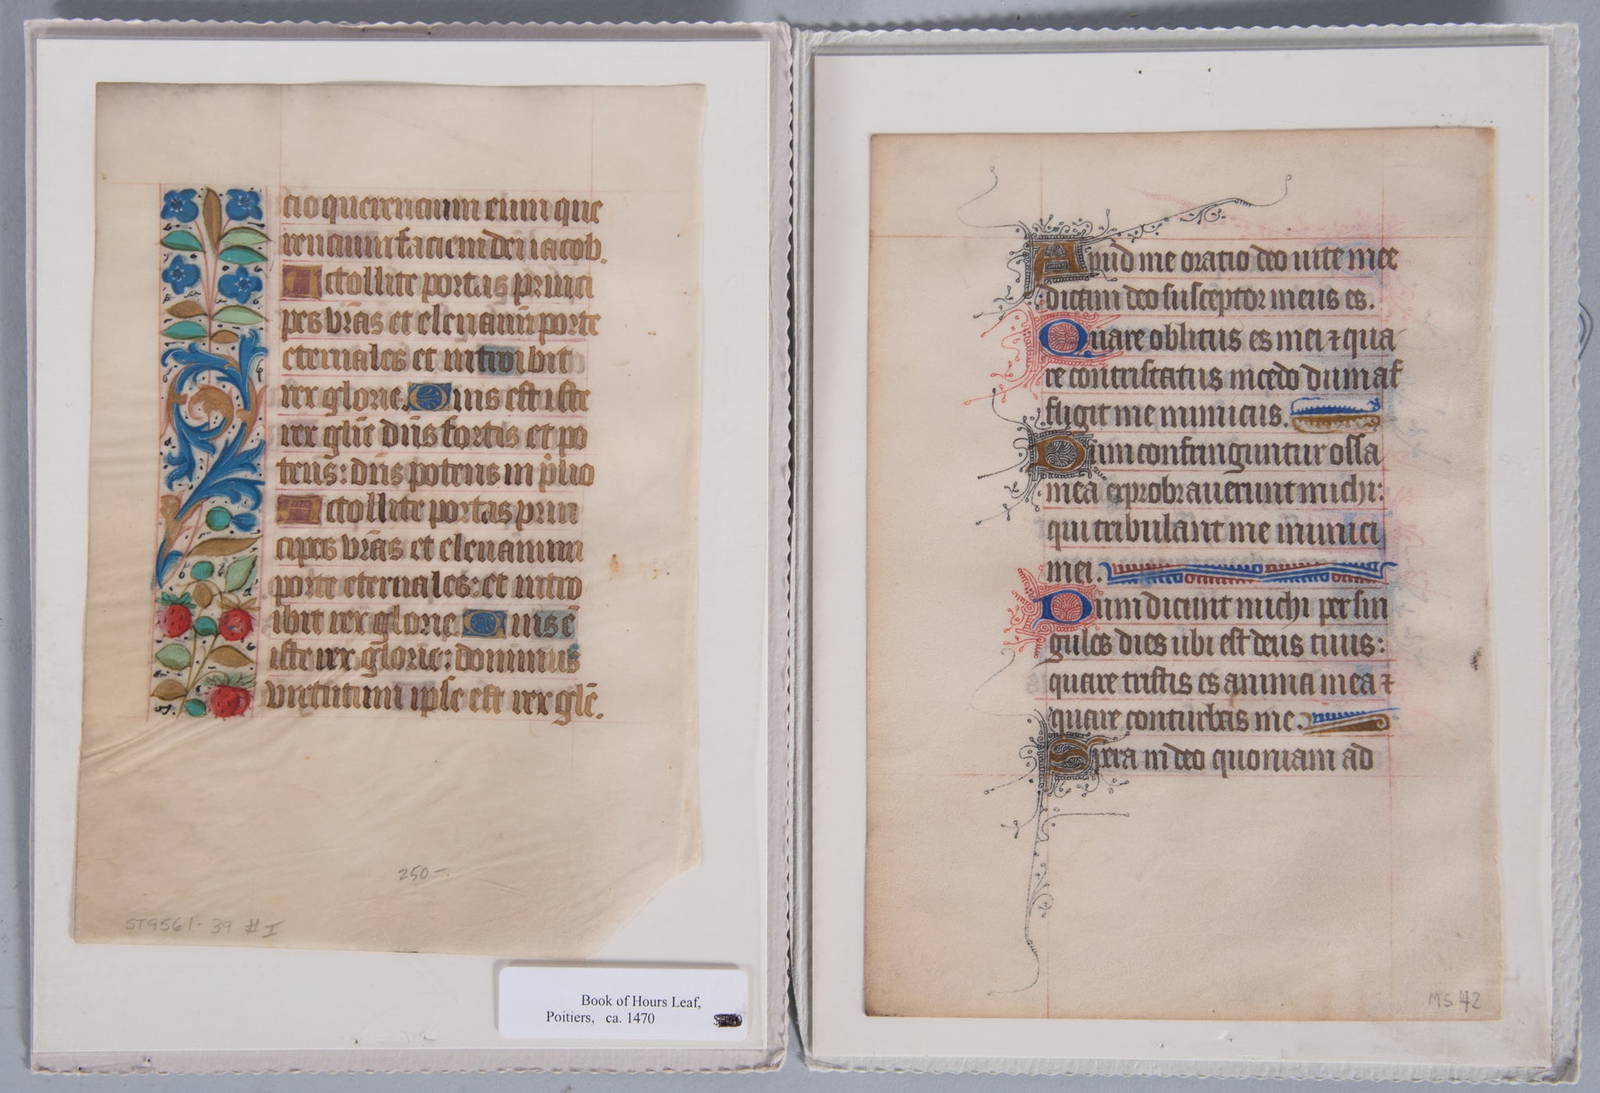 cio querencium eum que
rencium faciem dei iacob.
Actollite portas princi
pes vr̄as et eleuamī porte
eternales et introibit
rex glorie. Quis est iste
rex glīe dn̄s fortis et po
tens: dn̄s potens in p̄lio
Actollite portas prin
cipes vr̄as et eleuamini
porte eternales: et intro
ibit rex glorie. Quis ē
iste rex glorie: dominus
virtutum ipse est rex glē.
250-
ST9561-39 #I
Book of Hours Leaf,
Poitiers, ca. 1470
Apud me oratio deo uite mee
dicam deo susceptor meus es.
Quare oblitus es mei ⁊ qua
re contristatus incedo dum af
fligit me inimicus.
Dum confringuntur ossa
mea exprobrauerunt michi:
qui tribulant me inimici
mei.
Dum dicunt michi per sin
gulos dies ubi est deus tuus:
quare tristis es anima mea ⁊
quare conturbas me.
Spera in deo quoniam ad
MS 42